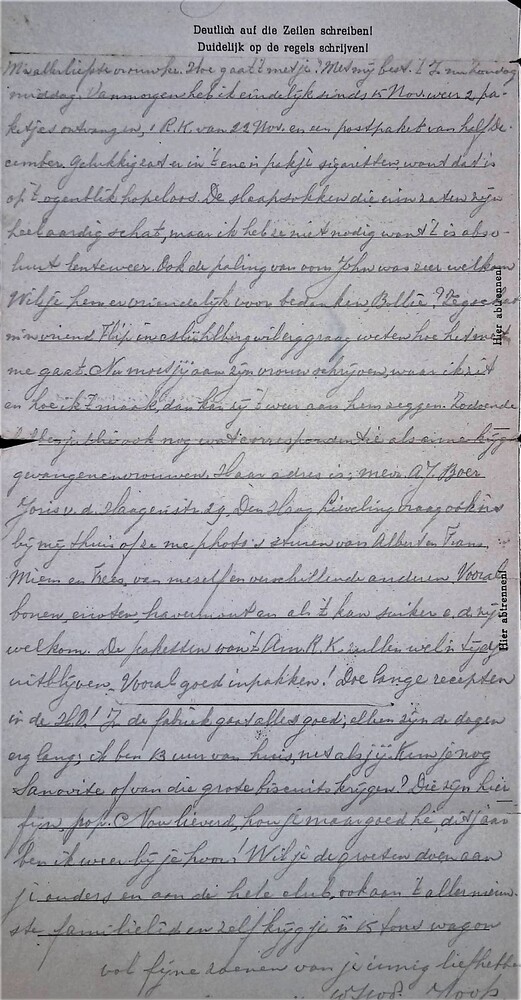 Deutlich auf die Zeilen schreiben!
Duidelijk op de regels schrijven!
M'n allerliefste vrouwke. Hoe gaat 't met je? Met mij best. 't Is nu Zondag
middag. Vanmorgen heb ik eindelijk sinds 15 Nov. weer 2 pa-
ketjes ontvangen, 1 R.K. van 22 Nov. en een postpaket van half De-
cember. Gelukkig zat er in 't ene 'n pakje sigaretten, want dat is
op 't ogenblik hopeloos. De slaapsokken die erin zaten zijn
heel aardig schat, maar ik heb ze niet nodig want 't is abso-
luut lenteweer. Ook de paling van oom John was zeer welkom
Wil je hem er vriendelijk voor bedanken, Bollie?
m'n vriend Flip in Mühlberg wil erg graag weten hoe het met
me gaat. Nu moet jij aan zijn vrouw schrijven, waar ik zit
en hoe ik 't maak, dan kan zij 't weer aan hem zeggen. Zodoende
ook nog wat correspondentie als arme krijgs-
gevangenenvrouwen. Haar adres is; mevr. A.J. Boer
Joris v.d. Haagenstr. 29, Den Haag. Lieveling vraag ook 'ns
bij mij thuis of ze me photo's sturen van Albert en Frans
Miem en Kees, van meself en verschillende anderen. Vooral
bonen, erwten, havermout en als 't kan suiker e.d. zijn
welkom. De paketten van 't Am. R.K. zullen wel 'n tijdje
uitblijven. Vooral goed inpakken! Doe lange recepten
in de H.P.! I. de fabriek gaat alles goed; alleen zijn de dagen
erg lang; ik ben 13 uur van huis, net als jij. Kun je nog
Sanovite of van die grote biscuits krijgen? Die zijn hier
fijn, pop. Nou lieverd, hou je maar goed hè, dit jaar
ben ik weer bij je hoor! Wil je de groeten doen aan
je ouders en aan de hele club, ook aan 't allernieuw-
ste familielid en zelf krijg je 'n 15 tons wagon
vol fijne zoenen van je innig liefhebbende
Hier abtrennen!
Hier abtrennen!